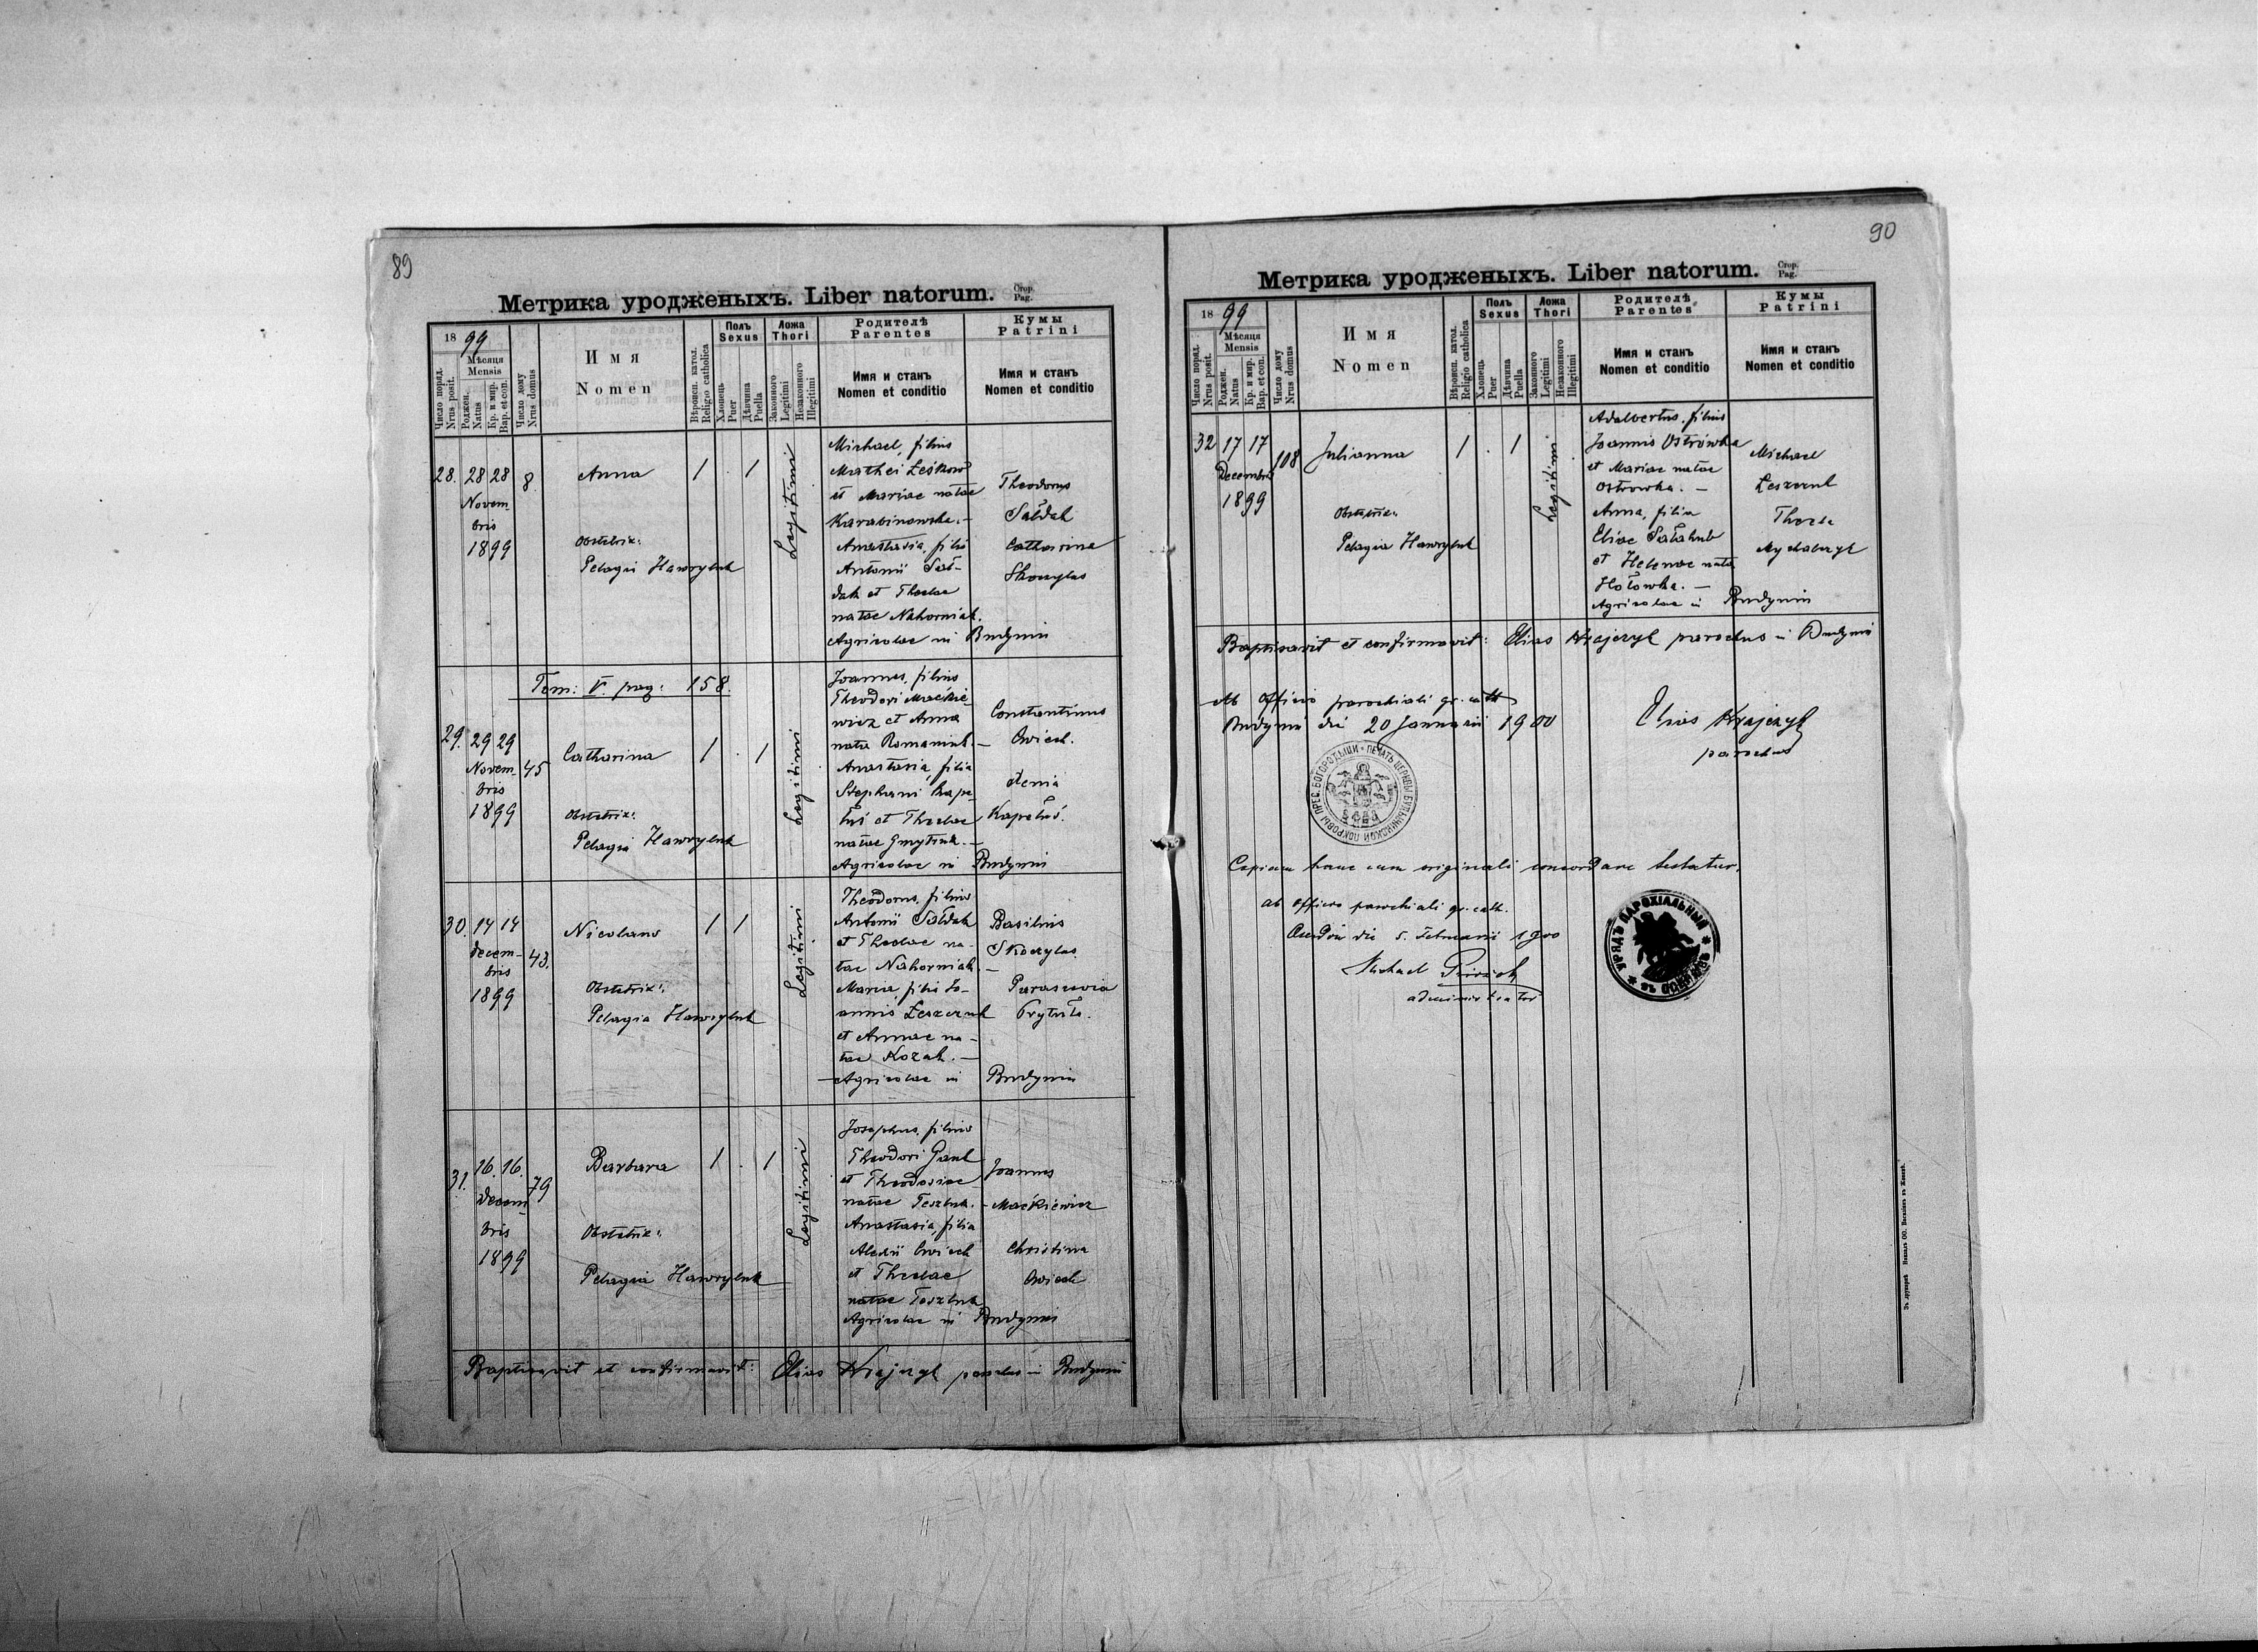 89
Метрика уродженыхъ. Liber natorum.
Стор.
Pag.
18 99
Мѣсяця
Mensis
Число поряд.
Nrus posit.
Роджен.
Natus
Кр. и мир.
Bap. et con.
Число дому
Nrus domus
Имя
Nomen
Вѣроисп. катол.
Religio catholica
Полъ
Sexus
Хлопець
Puer
Дѣвчина
Puella
Ложа
Thori
Законного
Legitimi
Незаконного
Illegitimi
Родителѣ
Parentes
Имя и станъ
Nomen et conditio
Кумы
Patrini
Имя и станъ
Nomen et conditio
28. 28 28 8. Anna 1 . 1 Legitimi
Novem-
bris
1899
Obstetrix:
Pelagia Hawryluk
Michael, filius
Mathei Leśków
et Mariae natae
Karabinowska. –
Anastasia, filia
Antonii Sał-
dak et Theclae
natae Nahorniak.
Agricolae in Budynin
Theodorus
Sałdak
Catharina
Skoczylas
Tom: V. pag: 158.
29. 29 29 45 Catharina 1 . 1 Legitimi
Novem-
bris
1899
Obstetrix:
Pelagia Hawryluk
Joannes, filius
Theodori Maćkie-
wicz et Anna
nata Romaniuk. –
Anastasia, filia
Stephani Kape-
luś et Theclae
natae Gmytruk. –
Agricolae in Budynin
Constantinus
Owiech.
Xenia
Kapeluś.
30. 14 14 43. Nicolaus 1 1 Legitimi
Decem-
bris
1899
Obstetrix:
Pelagia Hawryluk
Theodorus, filius
Antonii Sałdak
et Theclae na-
tae Nahorniak –
Maria, filia Jo-
annis Leszczuk
et Annae na-
tae Kozak. –
Agricolae in Budynin
Basilius
Skoczylas.
Parascevia
Prytuła.
31. 16. 16. 79 Barbara 1 . 1 Legitimi
Decem-
bris
1899
Obstetrix:
Pelagia Hawryluk
Josephus, filius
Theodori Gaul
et Theodosiae
natae Teszluk. –
Anastasia, filia
Alexii Owiech
et Theclae
natae Teszluk
Agricolae in Budynin
Joannes
Maćkiewicz
Christina
Owiech
Baptisavit et confirmavit: Elias Krajczyk parochus in Budynin
90
Метрика уродженыхъ. Liber natorum.
Стор.
Pag.
18 99
Мѣсяця
Mensis
Число поряд.
Nrus posit.
Роджен.
Natus
Кр. и мир.
Bap. et con.
Число дому
Nrus domus
Имя
Nomen
Вѣроисп. катол.
Religio catholica
Полъ
Sexus
Хлопець
Puer
Дѣвчина
Puella
Ложа
Thori
Законного
Legitimi
Незаконного
Illegitimi
Родителѣ
Parentes
Имя и станъ
Nomen et conditio
Кумы
Patrini
Имя и станъ
Nomen et conditio
32 17 17 108 Julianna 1 . 1 Legitimi
Decembris
1899
Obstetrix:
Pelagia Hawryluk
Adalbertus, filius
Joannis Ostrówka
et Mariae natae
Ostrowka. –
Anna, filia
Eliae Sałahub
et Helenae nata
Hołowka. –
Agricolae in Budynin
Michael
Leszczuk
Thecla
Baptisavit et confirmavit: Elias Krajczyk parochus in Budynin
Ab officio parochiali gr. cath
Budynin die 20 Januarii 1900
Elias Krajczyk
parochus
ПЕЧАТЬ ЦЕРКВЫ БУДЫНИНСКОЙ ПОКРОВЫ ПРЕС. БОГОРОДЫЦИ
Copiam hanc cum originali concordare testatur.
ab officio parochiali gr. cath.
die 5. Februarii 1900
Michael
administrator
УРЯДЪ ПАРОХІАЛЬНЫЙ